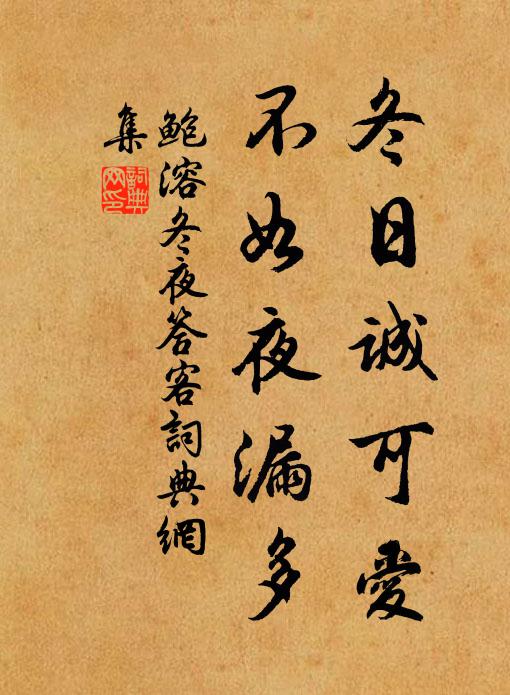 冬日誠可愛
不如夜漏多
鮑溶冬夜答客詞典網
集
詞典
网印